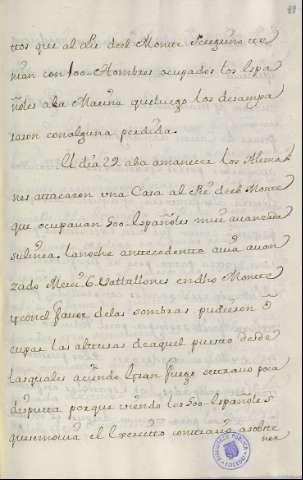 tros que al pie de el Monte Peregrino te
nian con 100 Hombres ocupados los Espa
ñoles a la Marina que luego los desampa
raron con alguna perdida.
El dia 22 al amanecer los Alema
nes attacaron una Casa al Pie de el Monte
que ocupavan 500 Españoles mui avanzada
su linea. la noche antecedente avia avan
zado Merci 6 Battallones en dho Monte
y con el favor de las sombras pudieron o
cupar las alturas de aquel puesto desde
las quales aciendo gran fuego
disputta porque viendo los 500 Españoles
que movia el Exercitto contrario a sobste
ner
BIBLIOTECA PÚBLICA
TOLEDO